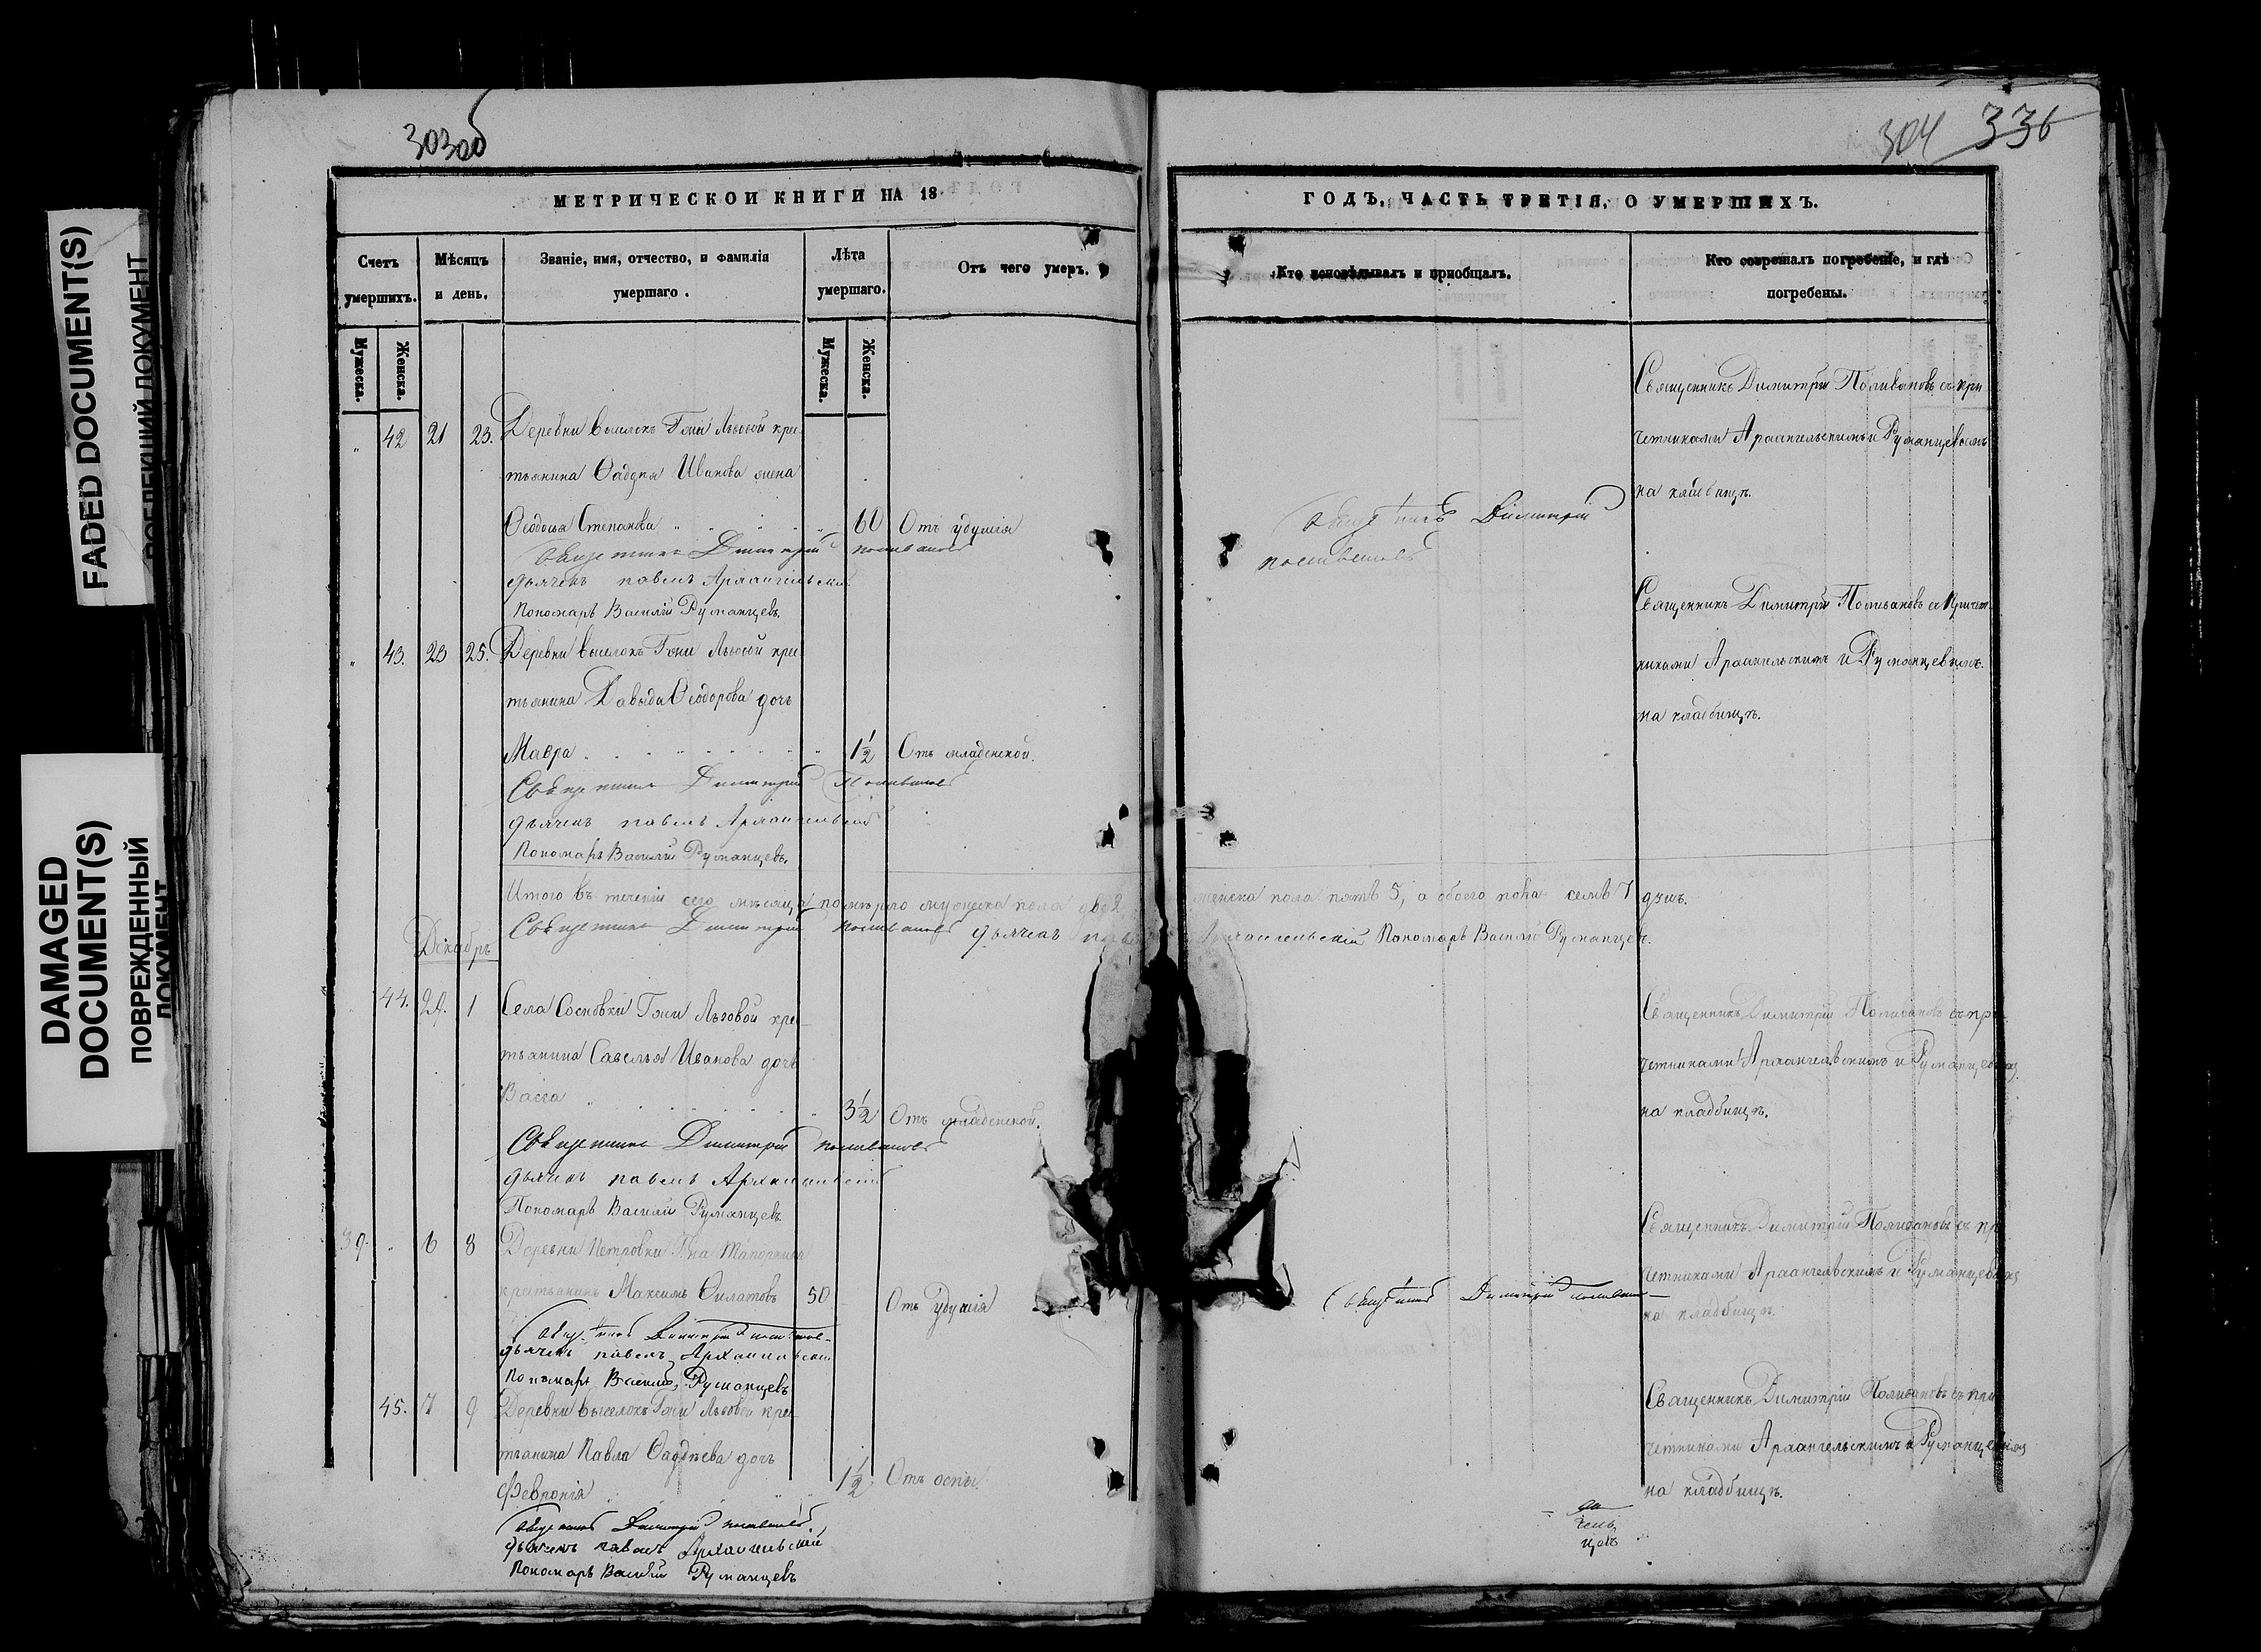 303об
304 336
МЕТРИЧЕСКОЙ КНИГИ НА 18
ГОДЪ, ЧАСТЬ ТРЕТІЯ, О УМЕРШИХЪ.
Счетъ умершихъ.
Мѣсяцъ и день.
Званіе, имя, отчество, и фамилія умершаго.
Лѣта умершаго.
Отъ чего умеръ.
Кто исповѣдывалъ и пріобщалъ.
Кто совершалъ погребеніе, и гдѣ погребены.
Мужеска.
Женска.
Мужеска.
Женска.
42 21 23. Деревни Выселокъ Гжи Львовой кре
тьянина Фаддея Иванова жена
Ѳеодосья Степанова 60 Отъ удушія
Священникъ Димитрій Поливановъ
дьячекъ павелъ Архангельскій
Пономарь Василій Румянцевъ.
Священникъ Димитрій
поливановъ
Священникъ Димитрій Поливановъ съ при
четниками Архангельскимъ и Румянцевымъ
на кладбищѣ.
43. 23 25. Деревни Выселокъ Гжи Львовой кре
тьянина Давыда Ѳеодорова дочь
Мавра 1½ Отъ младенской.
Священникъ Димитрій Поливановъ
дьячекъ павелъ Архангельскій
Пономарь Василій Румянцевъ.
Священникъ Димитрій Поливановъ съ Причет
никами Архангельскимъ и Румянцевымъ
на кладбищѣ.
Итого въ теченіи сего мѣсяца померло мужеска пола два 2, женска пола пять 5, а обоего пола семь 7 душъ.
Священникъ Димитрій поливановъ дьячекъ павелъ Архангельскій Пономарь Василій Румянцевъ.
Декабрь
44. 29. 1 Села Сосновки Гжи Львовой кре
тьянина Савелья Иванова дочь
Васса 3½ Отъ младенской.
Священникъ Димитрій поливановъ
дьячекъ павелъ Архангельскій
Пономарь Василій Румянцевъ
Священникъ Димитрій Поливановъ съ при
четниками Архангельскимъ и Румянцевымъ
на кладбищѣ.
39. 6 8 Деревни Петровки Гна
кретьянинъ Максимъ Филатовъ 50 Отъ удушія
Священникъ Димитрій поливановъ
дьячекъ павелъ Архангельскій
Пономарь Василій Румянцевъ
Священникъ Димитрій поливановъ
Священникъ Димитрій Поливановъ съ при
четниками Архангельскимъ и Румянцевымъ
на кладбищѣ.
45. 7 9 Деревни Выселокъ Гжи Львовой кре
тьянина Павла Фаддѣева дочь
Февронія 1½ Отъ оспы.
Священникъ Димитрій поливановъ.
дьячекъ павелъ Архангельскій
Пономарь Василій Румянцевъ
Священникъ Димитрій Поливановъ съ при
четниками Архангельскимъ и Румянцевымъ
на кладбищѣ.
FADED DOCUMENT(S)
DAMAGED
DOCUMENT(S)
ПОВРЕЖДЕННЫЙ
ДОКУМЕНТ